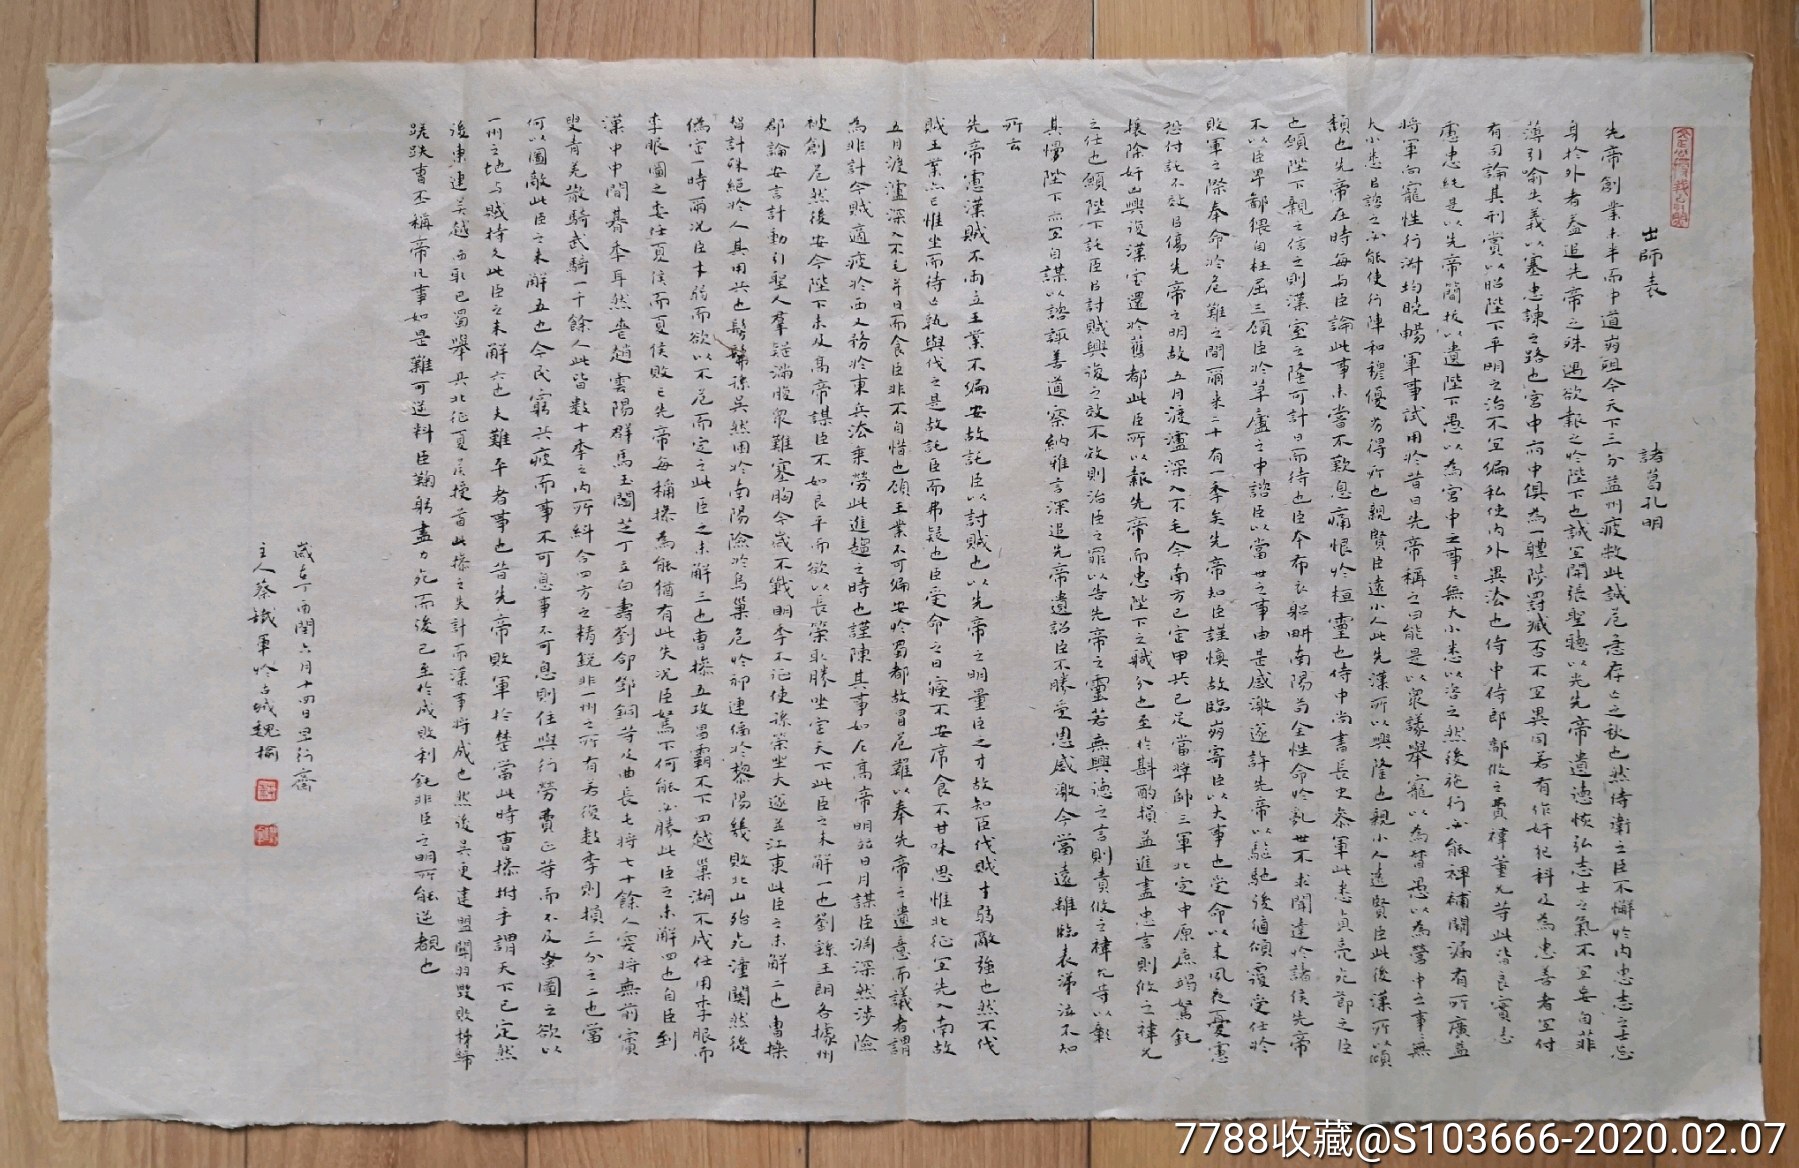 出師表 諸葛孔明
先帝創業未半而中道崩殂今天下三分益州疲敝此誠危急存亡之秋也然侍衛之臣不懈於內忠志之士忘
身於外者蓋追先帝之殊遇欲報之於陛下也誠宜開張聖聽以光先帝遺德恢弘志士之氣不宜妄自菲
薄引喻失義以塞忠諫之路也宮中府中俱為一體陟罰臧否不宜異同若有作奸犯科及為忠善者宜付
有司論其刑賞以昭陛下平明之治不宜偏私使內外異法也侍中侍郎郭攸之費禕董允等此皆良實志
慮忠純是以先帝簡拔以遺陛下愚以為宮中之事事無大小悉以咨之然後施行必能裨補闕漏有所廣益
將軍向寵性行淑均曉暢軍事試用於昔日先帝稱之曰能是以眾議舉寵以為督愚以為營中之事事無
大小悉以諮之必能使行陣和穆優劣得所也親賢臣遠小人此先漢所以興隆也親小人遠賢臣此後漢所以傾
頹也先帝在時每與臣論此事未嘗不歎息痛恨於桓靈也侍中尚書長史參軍此悉貞亮死節之臣
也願陛下親之信之則漢室之隆可計日而待也臣本布衣躬耕南陽苟全性命於亂世不求聞達於諸侯先帝
不以臣卑鄙猥自枉屈三顧臣於草廬之中諮臣以當世之事由是感激遂許先帝以驅馳後值傾覆受任於
敗軍之際奉命於危難之間爾來二十有一季矣先帝知臣謹慎故臨崩寄臣以大事也受命以來夙夜憂慮
恐付託不效以傷先帝之明故五月渡瀘深入不毛今南方已定甲兵已足當獎帥三軍北定中原庶竭駑鈍
攘除奸凶興復漢室還於舊都此臣所以報先帝而忠陛下之職分也至於斟酌損益進盡忠言則攸之禕允
之任也願陛下託臣以討賊興復之效不效則治臣之罪以告先帝之靈若無興德之言則責攸之禕允等以彰
其慢陛下亦宜自謀以諮諏善道察納雅言深追先帝遺詔臣不勝受恩感激今當遠離臨表涕泣不知
所云
先帝慮漢賊不兩立王業不偏安故託臣以討賊也以先帝之明量臣之才故知臣伐賊才弱敵強也然不伐
賊王業亦亡惟坐而待亡孰與伐之是故託臣而弗疑也臣受命之日寢不安席食不甘味思惟北征宜先入南故
五月渡瀘深入不毛并日而食臣非不自惜也顧王業不可偏安於蜀都故冒危難以奉先帝之遺意而議者謂
為非計今賊適疲於西又務於東兵法乘勞此進趨之時也謹陳其事如左高帝明竝日月謀臣淵深然涉險
被創危然後安今陛下未及高帝謀臣不如良平而欲以長策取勝坐定天下此臣之未解一也劉繇王朗各據州
郡論安言計動引聖人羣疑滿腹眾難塞胸今歲不戰明季不征使孫策坐大遂並江東此臣之未解二也曹操
智計殊絕於人其用兵也髣髴孫吳然困於南陽險於烏巢危於祁連偪於黎陽幾敗北山殆死潼關然後
偽定一時爾況臣才弱而欲以不危而定之此臣之未解三也曹操五攻昌霸不下四越巢湖不成任用李服而
李服圖之委任夏侯而夏侯敗亡先帝每稱操為能猶有此失況臣駑下何能必勝此臣之未解四也自臣到
漢中中間朞季耳然喪趙雲陽群馬玉閻芝丁立白壽劉郃鄧銅等及曲長屯將七十餘人突將無前賨
叟青羌散騎武騎一千餘人此皆數十季之內所糾合四方之精銳非一州之所有若復數季則損三分之二也當
何以圖敵此臣之未解五也今民窮兵疲而事不可息事不可息則住與行勞費正等而不及蚤圖之欲以
一州之地與賊持久此臣之未解六也夫難平者事也昔先帝敗軍於楚當此時曹操拊手謂天下已定然
後東連吳越西取巴蜀舉兵北征夏侯授首此操之失計而漢事將成也然後吳更違盟關羽毀敗秭歸
蹉跌曹丕稱帝凡事如是難可逆料臣鞠躬盡力死而後已至於成敗利鈍非臣之明所能逆覩也
歲在丁酉閏六月十四日里行齋
主人蔡鐵軍於古城魏榆
7788收藏@S103666-2020.02.07